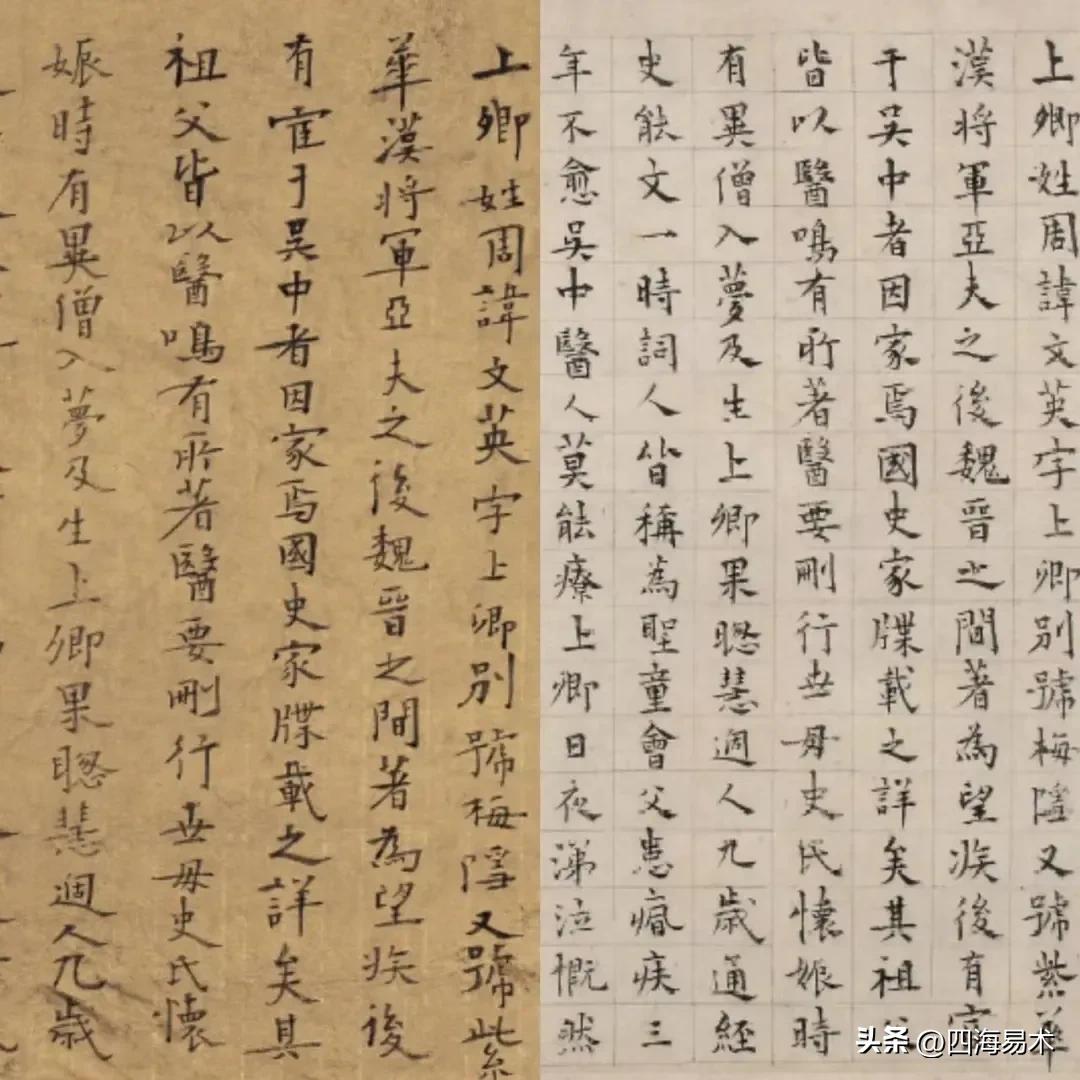 上卿姓周諱文英字上卿別號梅隱又號紫
華漢將軍亞夫之後魏晉之間著為望族後
有宦于吳中者因家焉國史家牒載之詳矣其
祖父皆以醫鳴有所著醫要刪行世母史氏懷
娠時有異僧入夢及生上卿果聰慧過人九歲
上卿姓周諱文英字上卿別號梅隱又號紫華
漢將軍亞夫之後魏晉之間著為望族後有宦
于吳中者因家焉國史家牒載之詳矣其祖父
皆以醫鳴有所著醫要刪行世母史氏懷娠時
有異僧入夢及生上卿果聰慧過人九歲通經
史能文一時詞人皆稱為聖童會父患疾三
年不愈吳中醫人莫能療上卿日夜涕泣慨然
头条 @四海易术